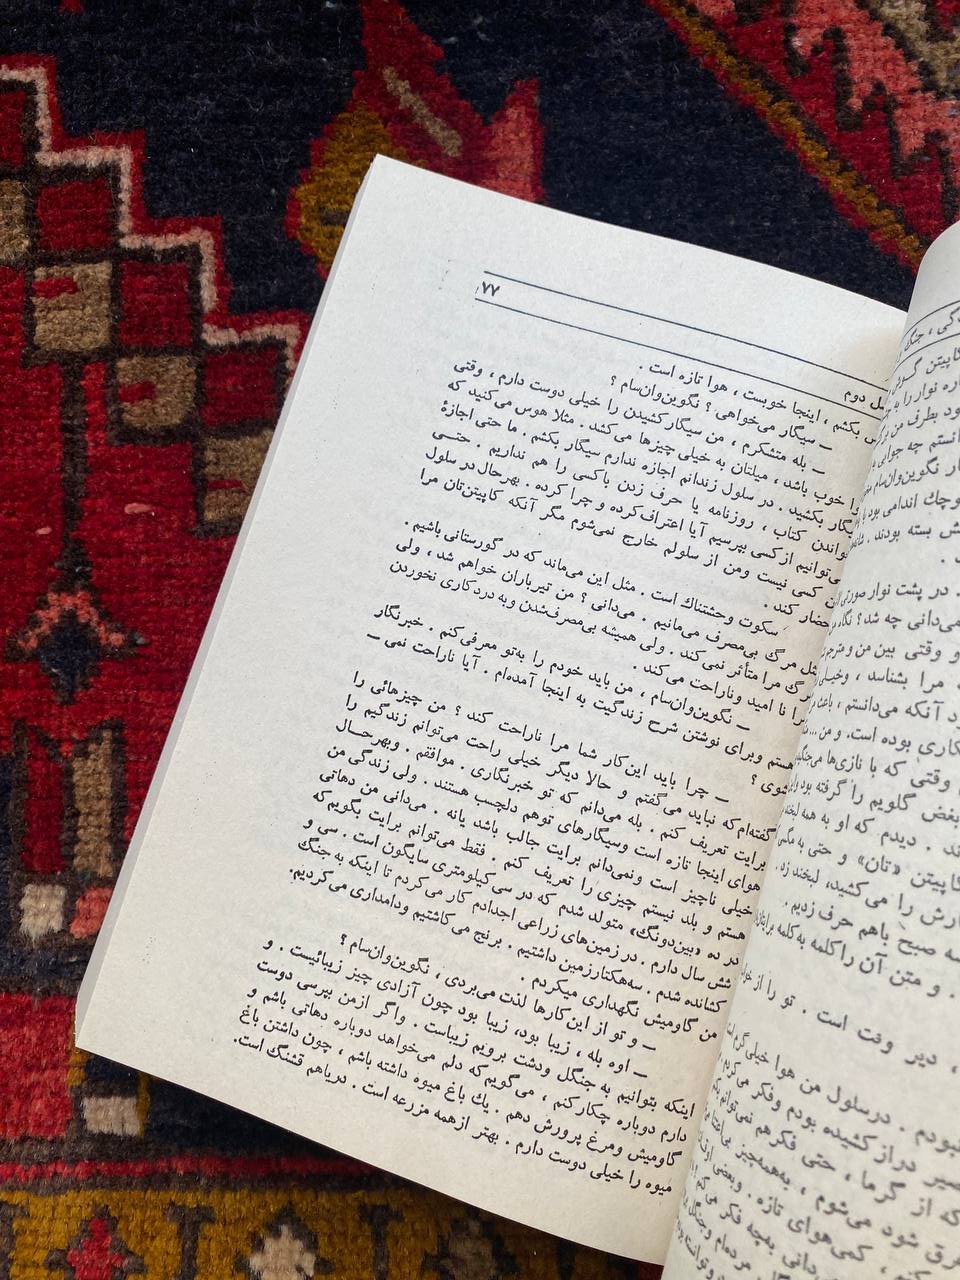 ، جنگ
کاپیتن گسون
نوار را به
بطرف من
چه جوابی
نگوین‌وان‌سام
اندامی بود
بسته بودند .
در پشت نوار صورتی
می‌دانی چه شد؟ نگاه
و وقتی بین من و مترجم
مرا بشناسد ، وخیلی
آنکه می‌دانستم ، باعث
بوده است. و من...
وقتی که با نازی‌ها
بغض گلویم را گرفته بود
. دیدم که او به همه لبخند
کاپیتن «تان» و حتی به
را می‌کشید، لبخند زد .
صبح باهم حرف زدیم .
. و متن آن را کلمه به کلمه
، دیر وقت است . تو را از
. درسلول من هوا خیلی گرم
دراز کشیده بودم وفکر می‌کردم
که از گرما ، حتی فکر هم نمی‌توانم
شود می‌شوم ، به‌همه‌چیز
، کمی‌هوای تازه . وبعضی
دانی به‌چه فکر می‌کنم
مرده‌ام وجنگل
۷۷
دوم
بکشم ، اینجا خوبست ، هوا تازه است .
ــ سیگار می‌خواهی ؟ نگوین‌وان‌سام ؟
ــ بله متشکرم ، من سیگار کشیدن را خیلی دوست دارم ، وقتی
خوب باشد ، میلتان به خیلی چیزها می‌کشد . مثلا هوس می‌کنید که
سیگار بکشید . در سلول زندانم اجازه ندارم سیگار بکشم . ما حتی اجازهٔ
خواندن کتاب ، روزنامه یا حرف زدن باکسی را هم نداریم . حتــی
نمی‌توانیم از کسی بپرسیم آیا اعتراف کرده و چرا کرده . بهرحال در سلول
کسی نیست ومن از سلولم خارج نمی‌شوم مگر آنکه کاپیتن‌تان مرا
احضار کند .
سکوت وحشتناك است . مثل این می‌ماند که در گورستانی باشیم .
مثل مرگ بی‌مصرف می‌مانیم . می‌دانی ؟ من تیرباران خواهم شد ، ولی
مرگ مرا متأثر نمی‌کند . ولی همیشه بی‌مصرف‌شدن وبه دردکاری نخوردن
مرا نا امید وناراحت می‌کند .
ــ نگوین‌وان‌سام ، من باید خودم را به‌تو معرفی‌کنم . خبرنگار
هستم وبرای نوشتن شرح زندگیت به اینجا آمده‌ام . آیا ناراحت نمی ــ
شوی ؟
ــ چرا باید این‌کار شما مرا ناراحت کند ؟ من چیزهائی را
گفته‌ام‌که نباید می‌گفتم و حالا دیگر خیلی راحت می‌توانم زندگیم را
برایت تعریف کنم . بله می‌دانم که تو خبرنگاری . موافقم . وبهرحــال
هوای اینجا تازه است وسیگارهای توهم دلچسب هستند . ولی زندگی من
خیلی ناچیز است ونمی‌دانم برایت جالب باشد یانه . می‌دانی من دهاتی
هستم و بلد نیستم چیزی را تعریف کنم . فقط می‌توانم برایت بگویم‌که
در ده «بین‌دونگ» متولد شدم که در سی کیلومتری سایگون است . سی و
شش سال دارم . در زمین‌های زراعی اجدادم کار می‌کردم تا اینکه به جنگ
کشانده شدم . سه‌هکتارزمین داشتیم . برنج می‌کاشتیم ودامداری می‌کردیم.
من گاومیش نگهداری میکردم .
ــ و تو از این کارها لذت می‌بردی ، نگوین‌وان‌سام ؟
ــ اوه بله ، زیبا بود، زیبا بود چون آزادی چیز زیبائیست . و
اینکه بتوانیم به جنگل ودشت برویم زیباست . واگر ازمن بپرسی دوست
دارم دوباره چکار کنم ، می‌گویم که دلم می‌خواهد دوباره دهاتی باشم و
گاومیش ومرغ پرورش دهم . یك باغ میوه داشته باشم ، چون داشتن باغ
میوه را خیلی دوست دارم . بهتر ازهمه مزرعه است . دریاهم قشنگ است.